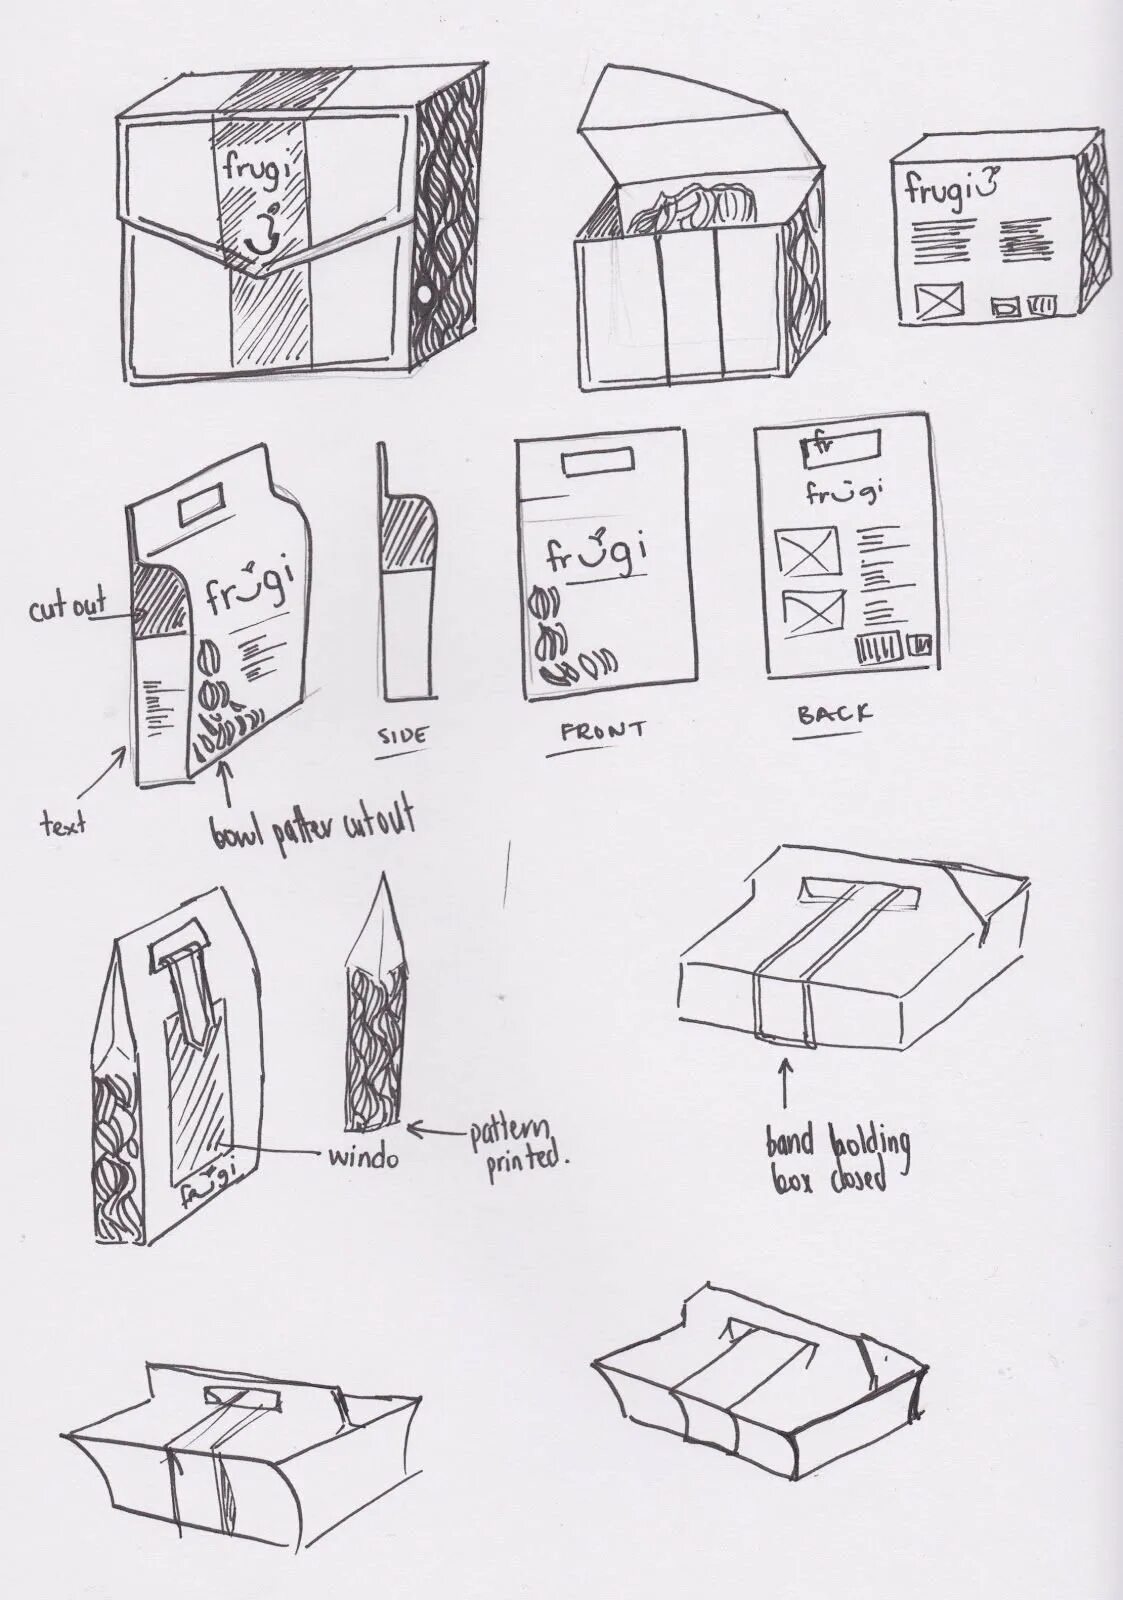 frugi
frugi
cut out
frugi
frugi
fr
frugi
SIDE
FRONT
BACK
text
bowl patter cutout
windo
frugi
pattern
printed.
band holding
box closed